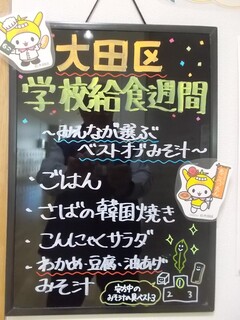 大田区
学校給食週間
〜みんなが選ぶ
ベストオブみそ汁〜
・ごはん
・さばの韓国焼き
・こんにゃくサラダ
・わかめ・豆腐・油あげ
みそ汁
みそ汁の具ベスト3
1
2
3